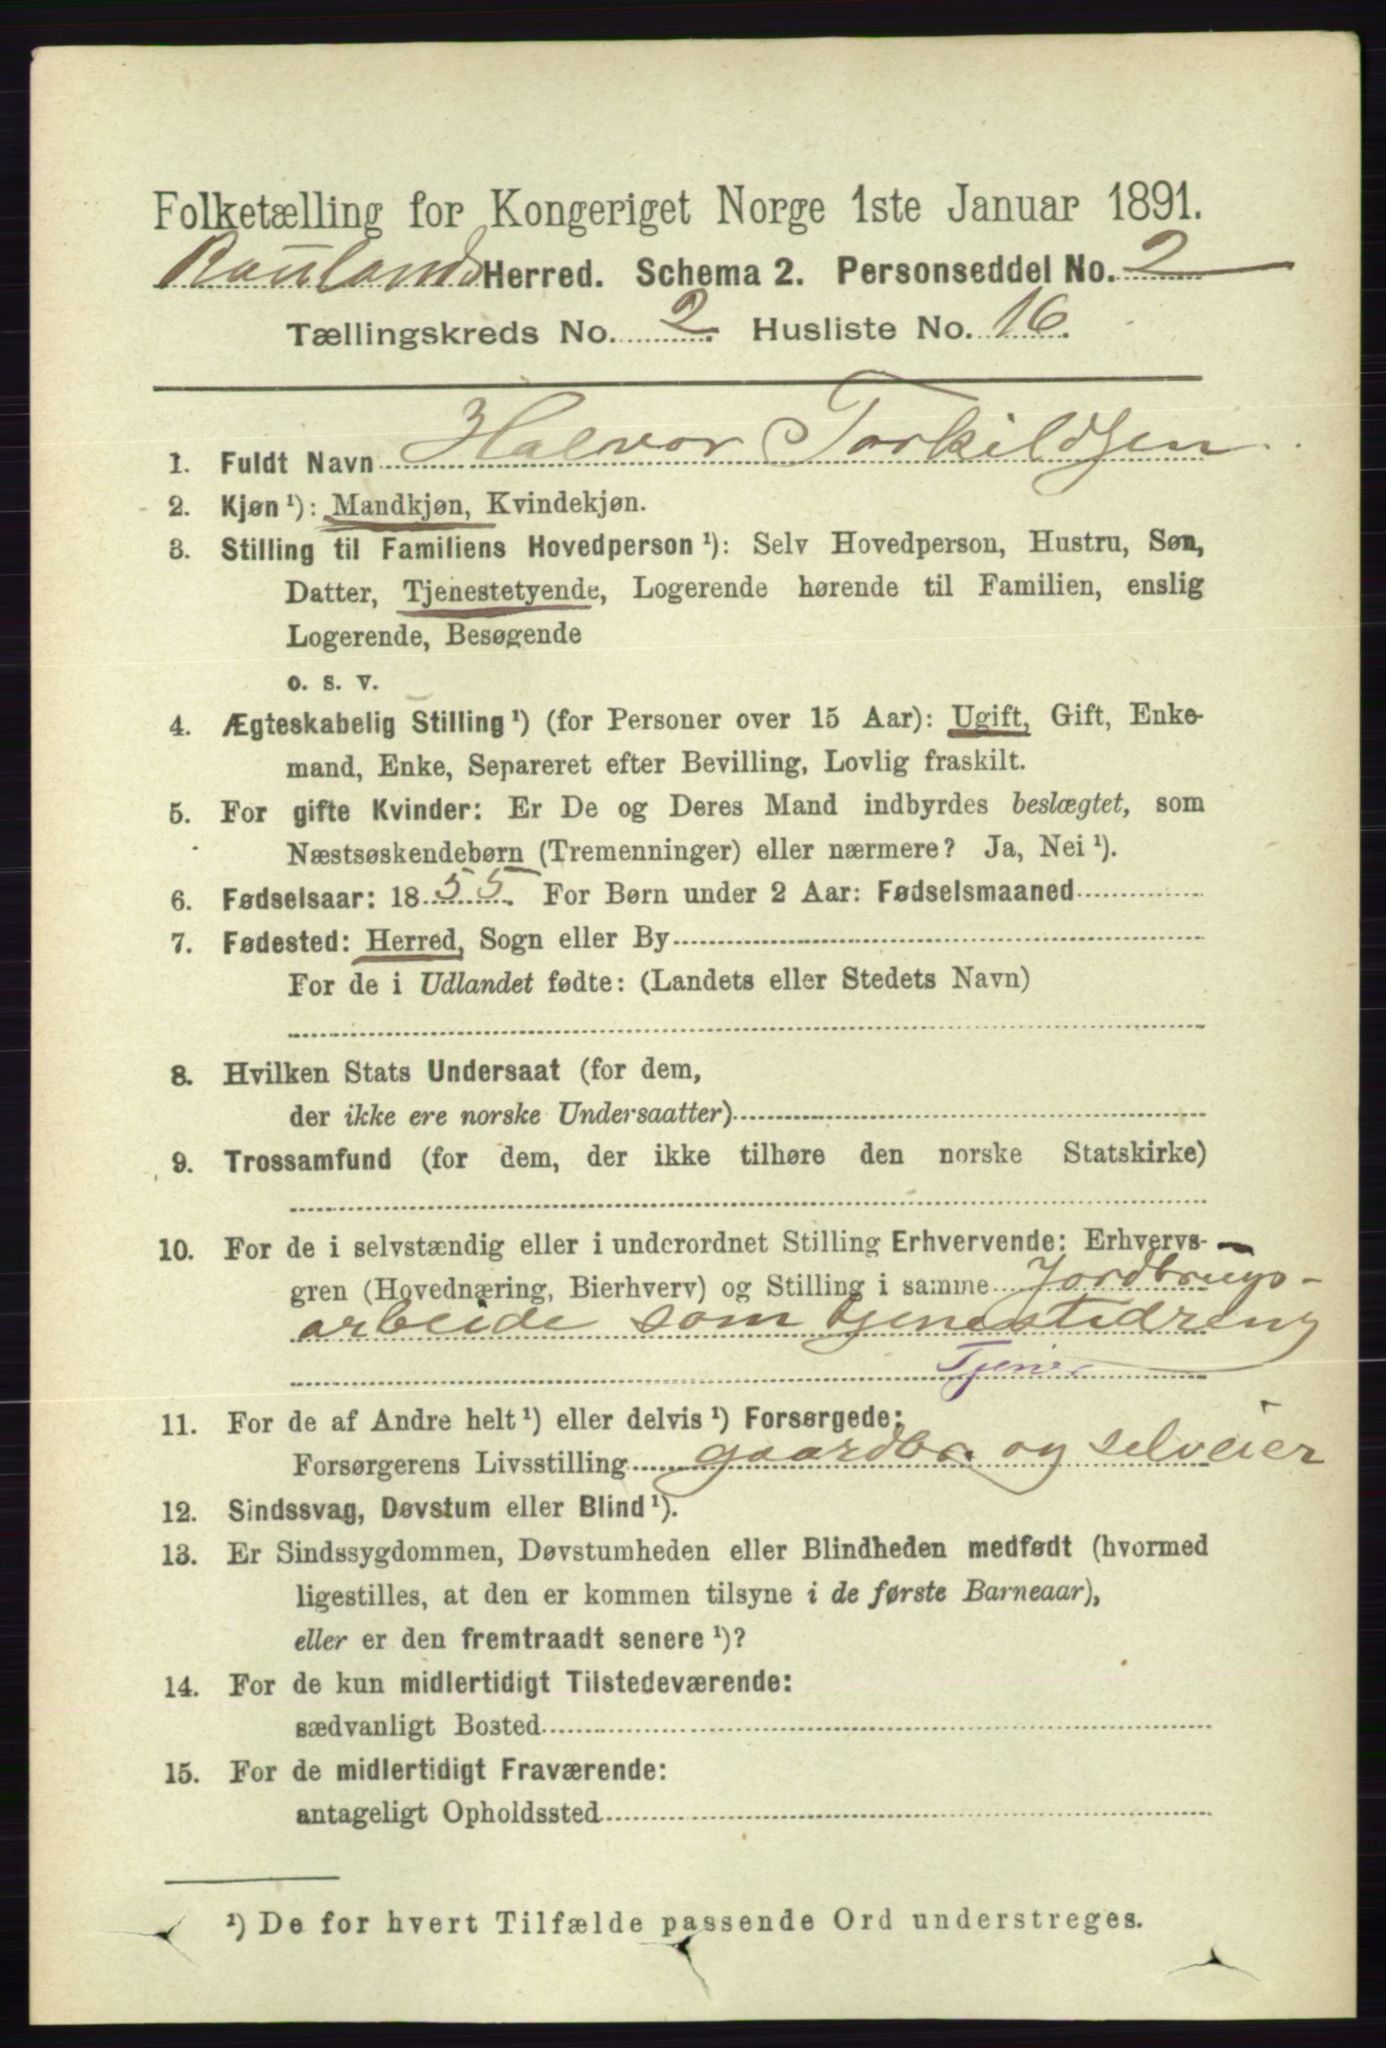 Folketælling for Kongeriget Norge 1ste Januar 1891.
Raulands Herred. Schema 2. Personseddel No. 2
Tællingskreds No. 2. Husliste No. 16.
1. Fuldt Navn Halvor Torkildsen
2. Kjøn ¹): Mandkjøn, Kvindekjøn.
3. Stilling til Familiens Hovedperson ¹): Selv Hovedperson, Hustru, Søn,
Datter, Tjenestetyende, Logerende hørende til Familien, enslig
Logerende, Besøgende
o. s. v.
4. Ægteskabelig Stilling ¹) (for Personer over 15 Aar): Ugift, Gift, Enke-
mand, Enke, Separeret efter Bevilling, Lovlig fraskilt.
5. For gifte Kvinder: Er De og Deres Mand indbyrdes beslægtet, som
Næstsøskendebørn (Tremenninger) eller nærmere? Ja, Nei ¹).
6. Fødselsaar: 18 55 For Børn under 2 Aar: Fødselsmaaned
7. Fødested: Herred, Sogn eller By
For de i Udlandet fødte: (Landets eller Stedets Navn)
8. Hvilken Stats Undersaat (for dem,
der ikke ere norske Undersaatter)
9. Trossamfund (for dem, der ikke tilhøre den norske Statskirke)
10. For de i selvstændig eller i underordnet Stilling Erhvervende: Erhvervs-
gren (Hovednæring, Bierhverv) og Stilling i samme Jordbrugs-
arbeide som tjenestedreng
Tjener
11. For de af Andre helt ¹) eller delvis ¹) Forsørgede:
Forsørgerens Livsstilling gaardbr. og selveier
12. Sindssvag, Døvstum eller Blind ¹).
13. Er Sindssygdommen, Døvstumheden eller Blindheden medfødt (hvormed
ligestilles, at den er kommen tilsyne i de første Barneaar),
eller er den fremtraadt senere ¹)?
14. For de kun midlertidigt Tilstedeværende:
sædvanligt Bosted
15. For de midlertidigt Fraværende:
antageligt Opholdssted
¹) De for hvert Tilfælde passende Ord understreges.